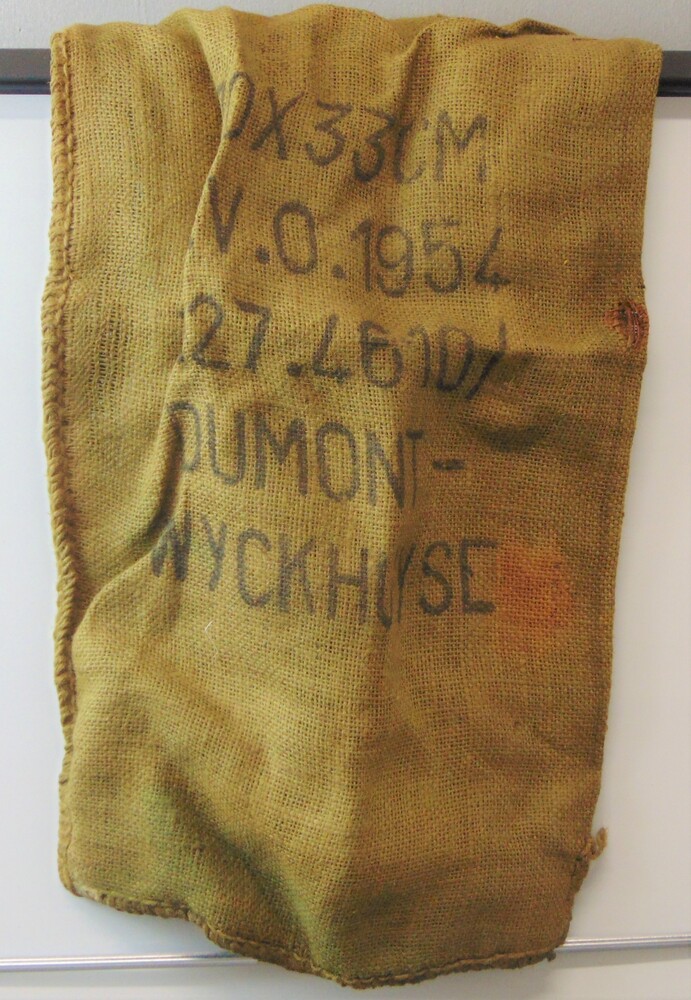 0X33CM
.V.O.1954
27.461D/
DUMONT-
WYCKHUYSE